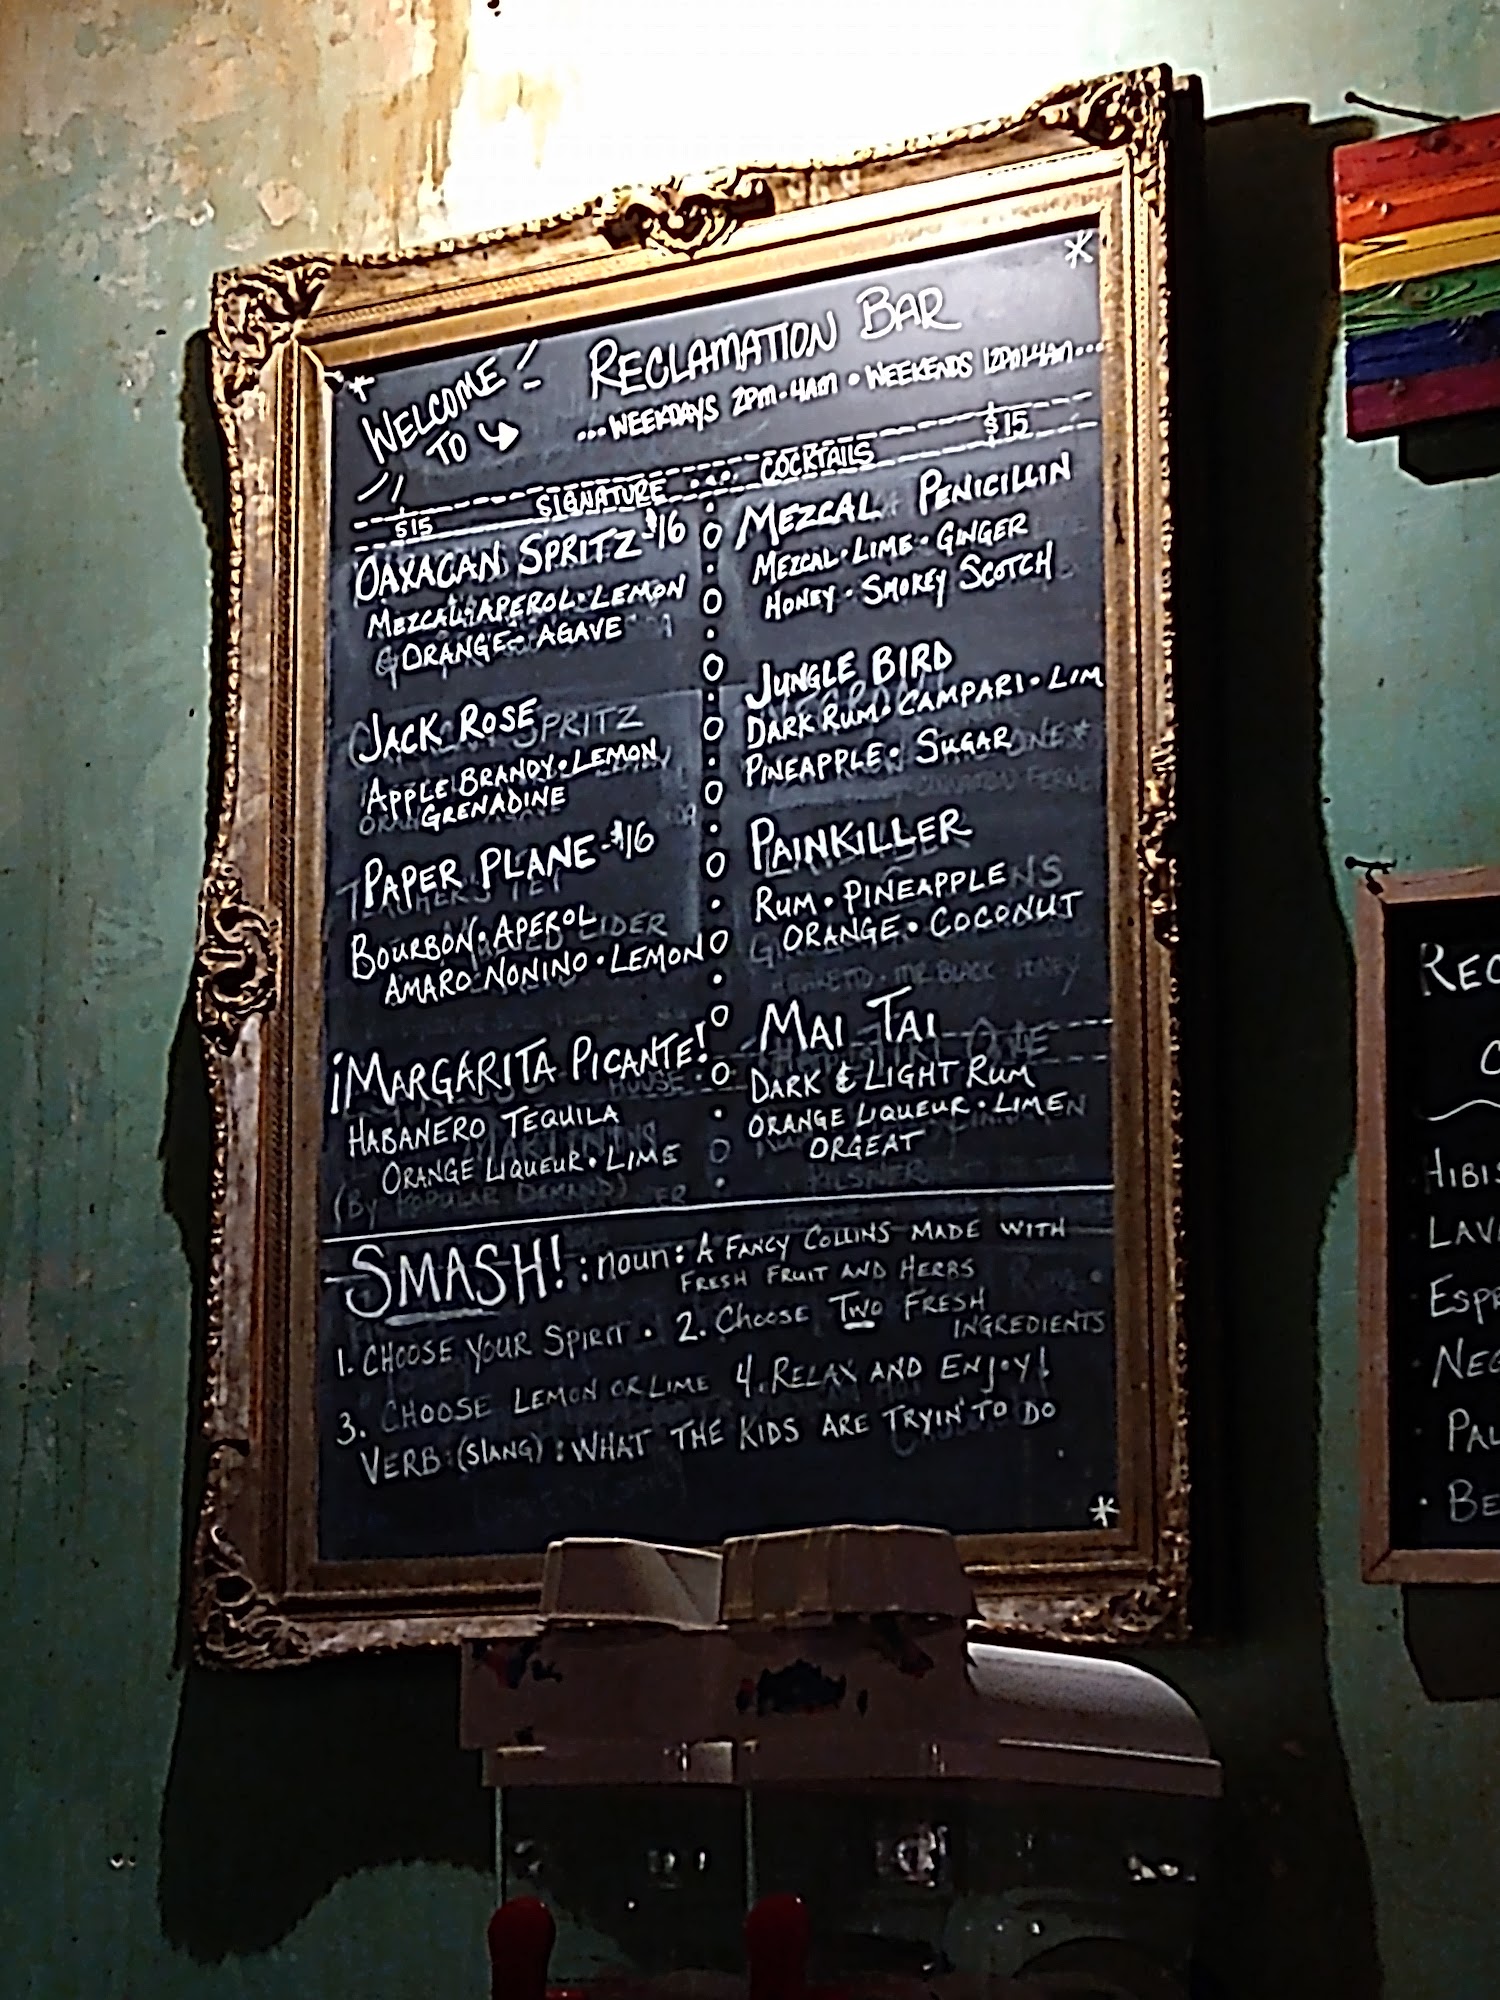 WELCOME
TO
RECLAMATION BAR
...WEEKDAYS 2PM-4AM • WEEKENDS 12PM-4AM...
$15 SIGNATURE ... COCKTAILS $15
OAXACAN SPRITZ-$16
MEZCAL•APEROL•LEMON
ORANGE•AGAVE
JACK ROSE
APPLE BRANDY•LEMON
GRENADINE
PAPER PLANE-$16
BOURBON•APEROL
AMARO NONINO•LEMON
¡MARGARITA PICANTE!
HABANERO TEQUILA
ORANGE LIQUEUR•LIME
(BY POPULAR DEMAND)
MEZCAL PENICILLIN
MEZCAL•LIME•GINGER
HONEY•SMOKEY SCOTCH
JUNGLE BIRD
DARK RUM•CAMPARI•LIM
PINEAPPLE•SUGAR
PAINKILLER
RUM•PINEAPPLE
ORANGE•COCONUT
MAI TAI
DARK & LIGHT RUM
ORANGE LIQUEUR•LIME
ORGEAT
SMASH! : noun: A FANCY COLLINS MADE WITH
FRESH FRUIT AND HERBS
1. CHOOSE YOUR SPIRIT • 2. CHOOSE TWO FRESH
INGREDIENTS
3. CHOOSE LEMON OR LIME 4. RELAX AND ENJOY!
VERB:(SLANG): WHAT THE KIDS ARE TRYIN' TO DO
REC
C
HIBIS
LAV
ESPR
NEG
• PAL
• BE